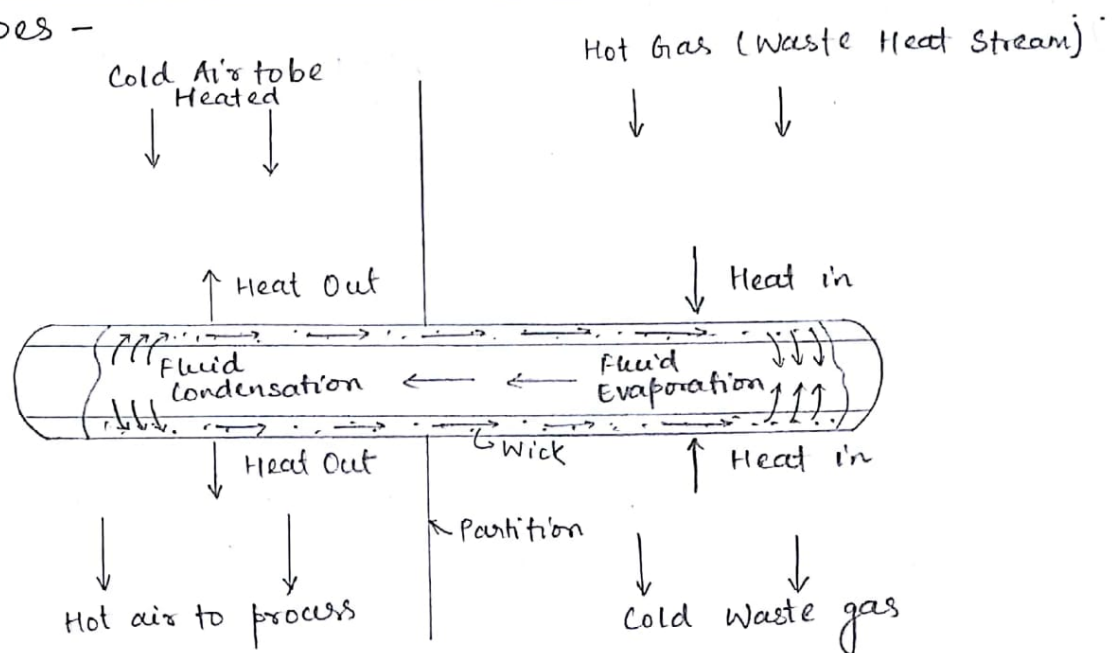 pes -
Hot Gas (Waste Heat Stream)
Cold Air to be
Heated
Heat Out
Heat in
Fluid
Condensation
Fluid
Evaporation
Wick
Heat Out
Heat in
Partition
Hot air to process
Cold Waste gas